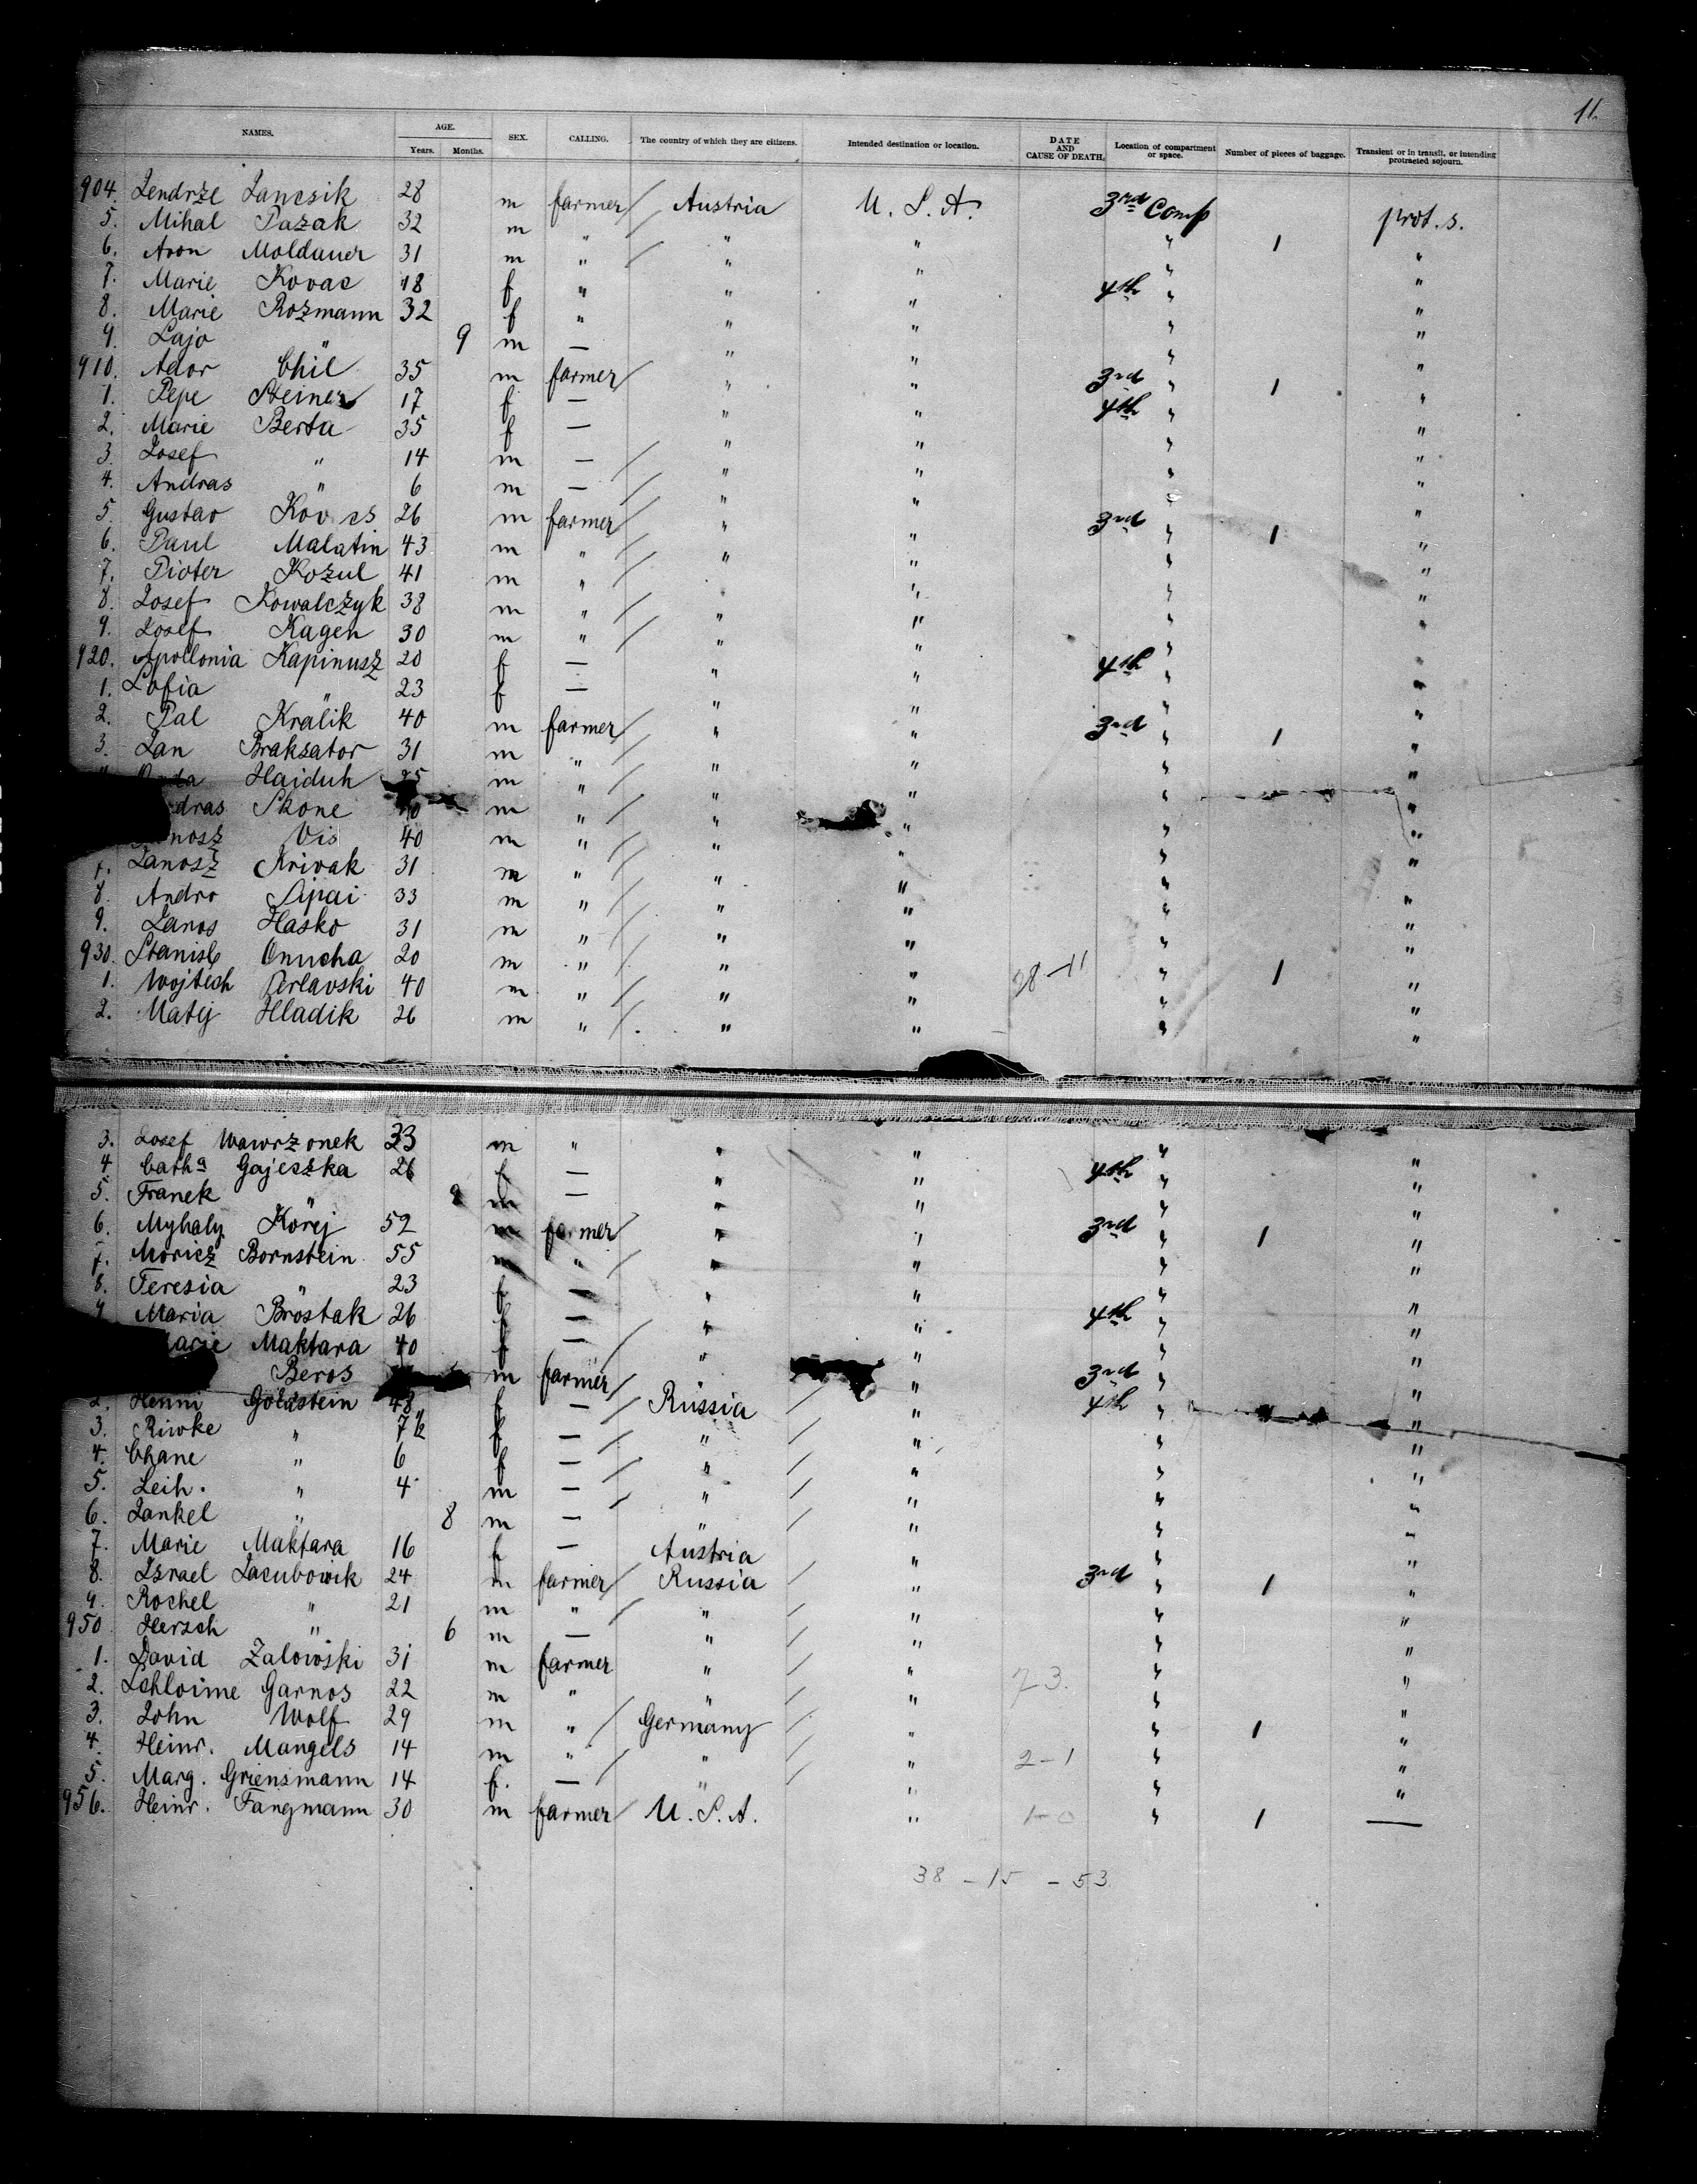 11.
NAMES. AGE. Years. Months. SEX. CALLING. The country of which they are citizens. Intended destination or location. DATE AND CAUSE OF DEATH. Location of compartment or space. Number of pieces of baggage. Transient or in transit, or intending protracted sojourn.
904. Jendrze Jancsik 28 m farmer Austria U. S. A. 3rd Comp prot. s.
5. Mihal Pazak 32 m " " " " 1 "
6. Aron Moldauer 31 m " " " " "
7. Marie Kovac 18 f " " " 4th " "
8. Marie Rozmann 32 f " " " " "
9. Lajo " 9 m — " " " "
910. Ador Chil 35 m farmer " " 3rd " 1 "
1. Pepe Steiner 17 f — " " 4th " "
2. Marie Berta 35 f — " " " "
3. Josef " 14 m — " " " "
4. Andras " 6 m — " " " "
5. Gustav 26 m farmer " " 3rd " 1 "
6. Paul Malatin 43 m " " " " "
7. Pioter Kozul 41 m " " " " "
8. Josef Kowalczyk 38 m " " " " "
9. Josef Kagen 30 m " " " " "
920. Apollonia Kapinusz 20 f — " " 4th " "
1. Sofia " 23 f — " " " "
2. Pal Kralik 40 m farmer " " 3rd " 1 "
3. Jan Braksator 31 m " " " " "
Hajduh m " " " " "
dras Skone m " " " " "
nosz Vis 40 m " " " " "
7. Janosz Krivak 31 m " " " " "
8. Andro Sipai 33 m " " " " "
9. Janos Hasko 31 m " " " " "
930. Stanisl Onucha 20 m " " " 28-11 " 1 "
1. Wojtech Orlavski 40 m " " " " "
2. Matij Hladik 26 m " " " " "
3. Josef Wawrzonek 33 m " " " " "
4. Catha Gajeszka 26 f — " " 4th " "
5. Franek " m — " " " "
6. Myhaly Körej 52 m farmer " " 3rd " 1 "
7. Moricz Bornstein 55 m " " " " "
8. Teresia " 23 f — " " " "
9. Maria Brostak 26 f — " " 4th " "
arie Maktara 40 f — " " " "
Beros m farmer " " 3rd " "
2. Henni Goldstein 48 f — Russia " 4th " "
3. Riwke " f — " " " "
4. Chane " 6 f — " " " "
5. Leib. " 4 m — " " " "
6. Jankel " 8 m — " " " "
7. Marie Maktara 16 f — Austria " " "
8. Israel Jacubowik 24 m farmer Russia " 3rd " 1 "
9. Rochel " 21 m " " " " "
950. Hersch " 6 m — " " " "
1. David Zalowski 31 m farmer " " " "
2. Schloime Garnos 22 m " " " 7 3. " "
3. John Wolf 29 m " Germany " " 1 "
4. Heinr. Mangels 14 m " " " 2-1 " "
5. Marg. Griensmann 14 f. — " " " "
956. Heinr. Fangmann 30 m farmer U. S. A. " 1-0 " 1 —
38 - 15 - 53